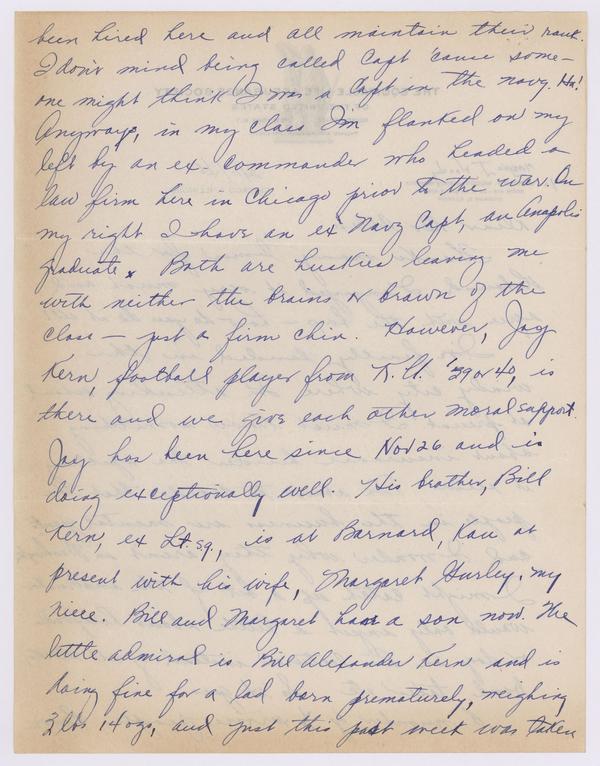 been hired here and all maintain their rank.
I don't mind being called Capt 'cause some-
one might think I was a Capt in the navy. Ha!
Anyways, in my class I'm flanked on my
left by an ex-commander who headed a
law firm here in Chicago prior to the war. On
my right I have an ex Navy Capt, an Anapolis
graduate. Both are huskies leaving me
with neither the brains or brawn of the
class — just a firm chin. However, Jay
Kern, football player from K.U. '39 or 40, is
there and we give each other moral support.
Jay has been here since Nov 26 and is
doing exceptionally well. His brother, Bill
Kern, ex Lt. sg., is at Barnard, Kan at
present with his wife, Margaret Gurley, my
niece. Bill and Margaret have a son now. The
little admiral is Bill Alexander Kern and is
doing fine for a lad born prematurely, weighing
3 lbs 14 ozs, and just this past week was taken